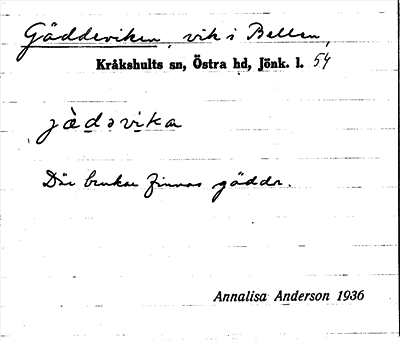 Gäddeviken, vik i Bellen,
Kråkshults sn, Östra hd, Jönk. l. 54
jæ̀dəvika
Där brukar finnas gäddr.
Annalisa Anderson 1936